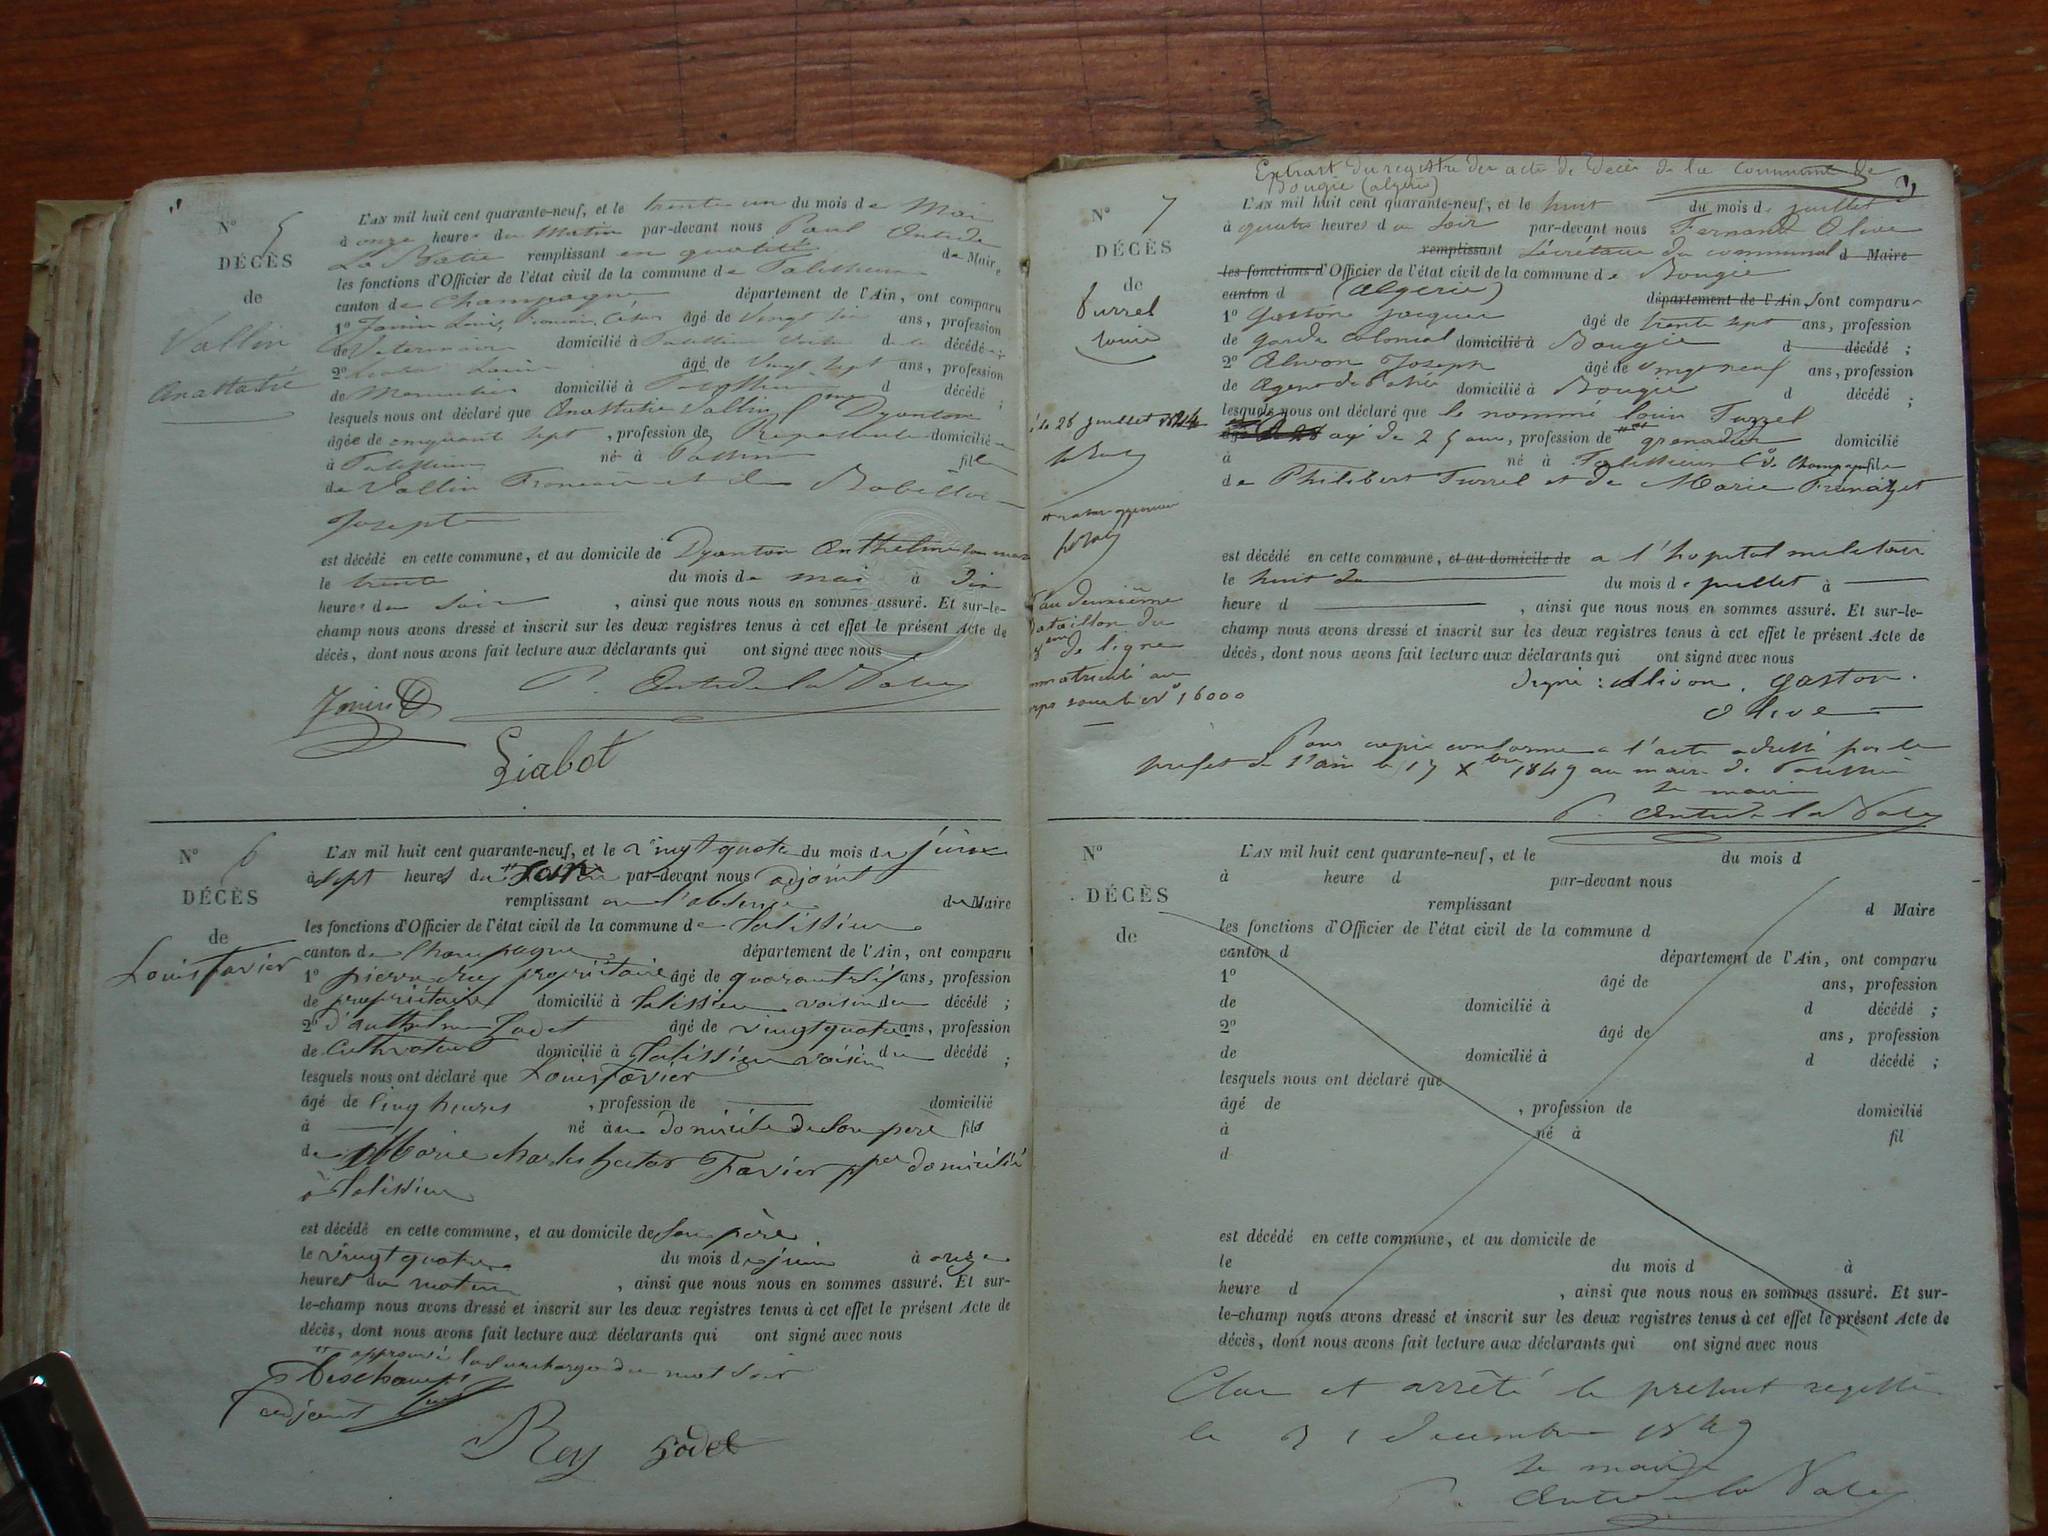 N° 5
DÉCÈS
de
Vallin
Anasthasie
L'AN mil huit cent quarante-neuf, et le trente un du mois de Mai
à onze heures du Matin par-devant nous Paul Antide
La Batie remplissant en qualité de Maire
les fonctions d'Officier de l'état civil de la commune de Talissieu
canton de Champagne département de l'Ain, ont comparu
1° Janin Louis, François, César âgé de vingt six ans, profession
de Vétérinaire domicilié à Talissieu décédée ;
2° Louis âgé de vingt sept ans, profession
de Menuisier domicilié à Talissieu d décédé ;
lesquels nous ont déclaré que Anasthasie Vallin f me Dyanton
âgée de cinquante sept , profession de domiciliée
à Talissieu né à fille
de Vallin François et de
Josephte
est décédé en cette commune, et au domicile de Dyanton Anthelme son mari
le trente du mois de mai à dix
heures du Soir , ainsi que nous nous en sommes assuré. Et sur-le-
champ nous avons dressé et inscrit sur les deux registres tenus à cet effet le présent Acte de
décès, dont nous avons fait lecture aux déclarants qui ont signé avec nous
Janin
P. Antide la Batie
Liabot
N° 6
DÉCÈS
de
Louis Favier
L'AN mil huit cent quarante-neuf, et le vingt quatre du mois de juin
à sept heures du soir par-devant nous adjoint
remplissant en l'absence du Maire
les fonctions d'Officier de l'état civil de la commune de talissieu
canton de Champagne département de l'Ain, ont comparu
1° pierre Rey propriétaire âgé de quarante six ans, profession
de propriétaire domicilié à talissieu voisin du décédé ;
2° d'anthelme Godet âgé de vingt quatre ans, profession
de Cultivateur domicilié à talissieu voisin du décédé ;
lesquels nous ont déclaré que Louis Favier
âgé de Cinq heures , profession de domicilié
à né au domicile de Son père fils
de Marie charles hector Favier domicilié
à talissieu
est décédé en cette commune, et au domicile de Son père
le vingt quatre du mois de juin à onze
heures du matin , ainsi que nous nous en sommes assuré. Et sur-
le-champ nous avons dressé et inscrit sur les deux registres tenus à cet effet le présent Acte de
décès, dont nous avons fait lecture aux déclarants qui ont signé avec nous
approuvé la surcharge du mot Soir
Deschamps
adjoint
Rey Godet
Extrait du registre des acte de Décès de la commune de
Bougie (algérie)
N° 7
DÉCÈS
de
Turrel
Louis
L'AN mil huit cent quarante-neuf, et le huit du mois de juillet
à quatre heures du Soir par-devant nous Fernand Olive
remplissant Sécrétaire du communal d Maire
les fonctions d'Officier de l'état civil de la commune de Bougie
canton d (algérie) département de l'Ain, sont comparu
1° Gaston Jacques âgé de trente sept ans, profession
de garde colonial domicilié à Bougie d décédé ;
2° Alivon Joseph âgé de vingt neuf ans, profession
de Agent de Police domicilié à Bougie d décédé ;
lesquels nous ont déclaré que le nommé Louis Turrel
agé de 25 ans, profession de grenadier domicilié
à né à Talissieu Con de Champagne fils
de Philibert Turrel et de Marie
est décédé en cette commune, et au domicile de a l'hopital militaire
le huit du du mois de juillet à
heure d , ainsi que nous nous en sommes assuré. Et sur-le-
champ nous avons dressé et inscrit sur les deux registres tenus à cet effet le présent Acte de
décès, dont nous avons fait lecture aux déclarants qui ont signé avec nous
Signé : Alivon, Gaston.
Olive
le 26 juillet 1824
au deuxième
bataillon du
de ligne
immatriculé au
corps sous le N° 16000
Pour copie conforme a l'acte adressé par le
prefet de l'ain le 17 Xbre 1849 au maire de Talissieu
Le maire
P. Antide la Batie
N°
DÉCÈS
de
L'AN mil huit cent quarante-neuf, et le du mois d
à heure d par-devant nous
remplissant d Maire
les fonctions d'Officier de l'état civil de la commune d
canton d département de l'Ain, ont comparu
1° âgé de ans, profession
de domicilié à d décédé ;
2° âgé de ans, profession
de domicilié à d décédé ;
lesquels nous ont déclaré que
âgé de , profession de domicilié
à né à fil
d
est décédé en cette commune, et au domicile de
le du mois d à
heure d , ainsi que nous nous en sommes assuré. Et sur-
le-champ nous avons dressé et inscrit sur les deux registres tenus à cet effet le présent Acte de
décès, dont nous avons fait lecture aux déclarants qui ont signé avec nous
Clos et arrêté le present registre
le 31 decembre 1849
Le maire
P. Antide la Batie